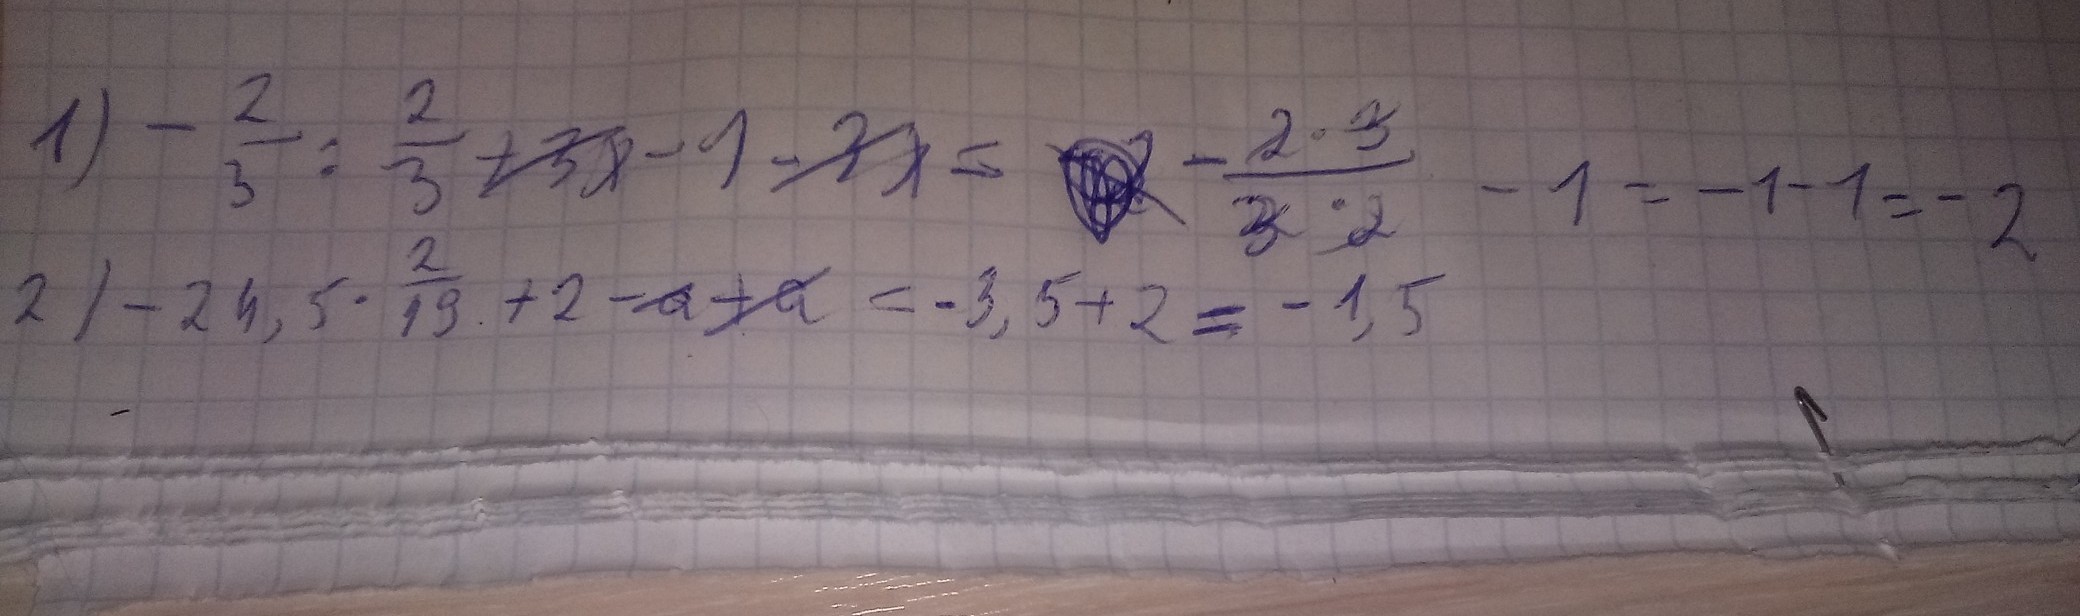 1) - 2/3 : 2/3 + 3x - 1 - 3x = - 2·3/3·2 - 1 = -1-1 = -2
2) -24,5 · 2/19 + 2 - a + a = -3,5+2 = -1,5